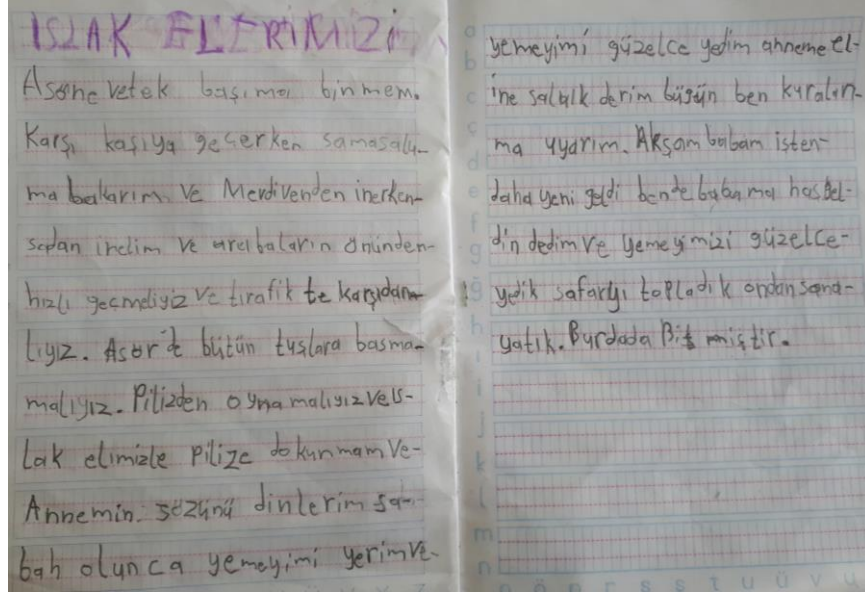 ISLAK ELERİMİZİ
Asöne vetek başıma binmem.
Karşı kaşıya geçerken samasalu-
ma bakarım ve Merdivenden inerken-
sağdan inelim ve arabaların önünden-
hızlı geçmeliyiz ve tırafik te karşıdan
lıyız. Asör't bütün tuşlara basma-
malıyız. Pilizden oynamalıyız ve ıs-
lak elimizle Pilize dokunmam ve-
Annemin sözünü dinlerim sa-
bah olunca yemeyimi yerim ve-
yemeyimi güzelce yedim anneme el-
ine salıık derim bügün ben kuralın-
ma uyarım. Akşam babam işten-
daha yeni geldi bende babama hoşgel-
din dedim ve yemeyimizi güzelce-
yedik safaryı topladık ondan sana-
yatık. Burdada Bitmiştir.
a
b
c
ç
d
e
f
g
ğ
h
ı
i
j
k
l
m
n
o ö p r s ş t u ü v y